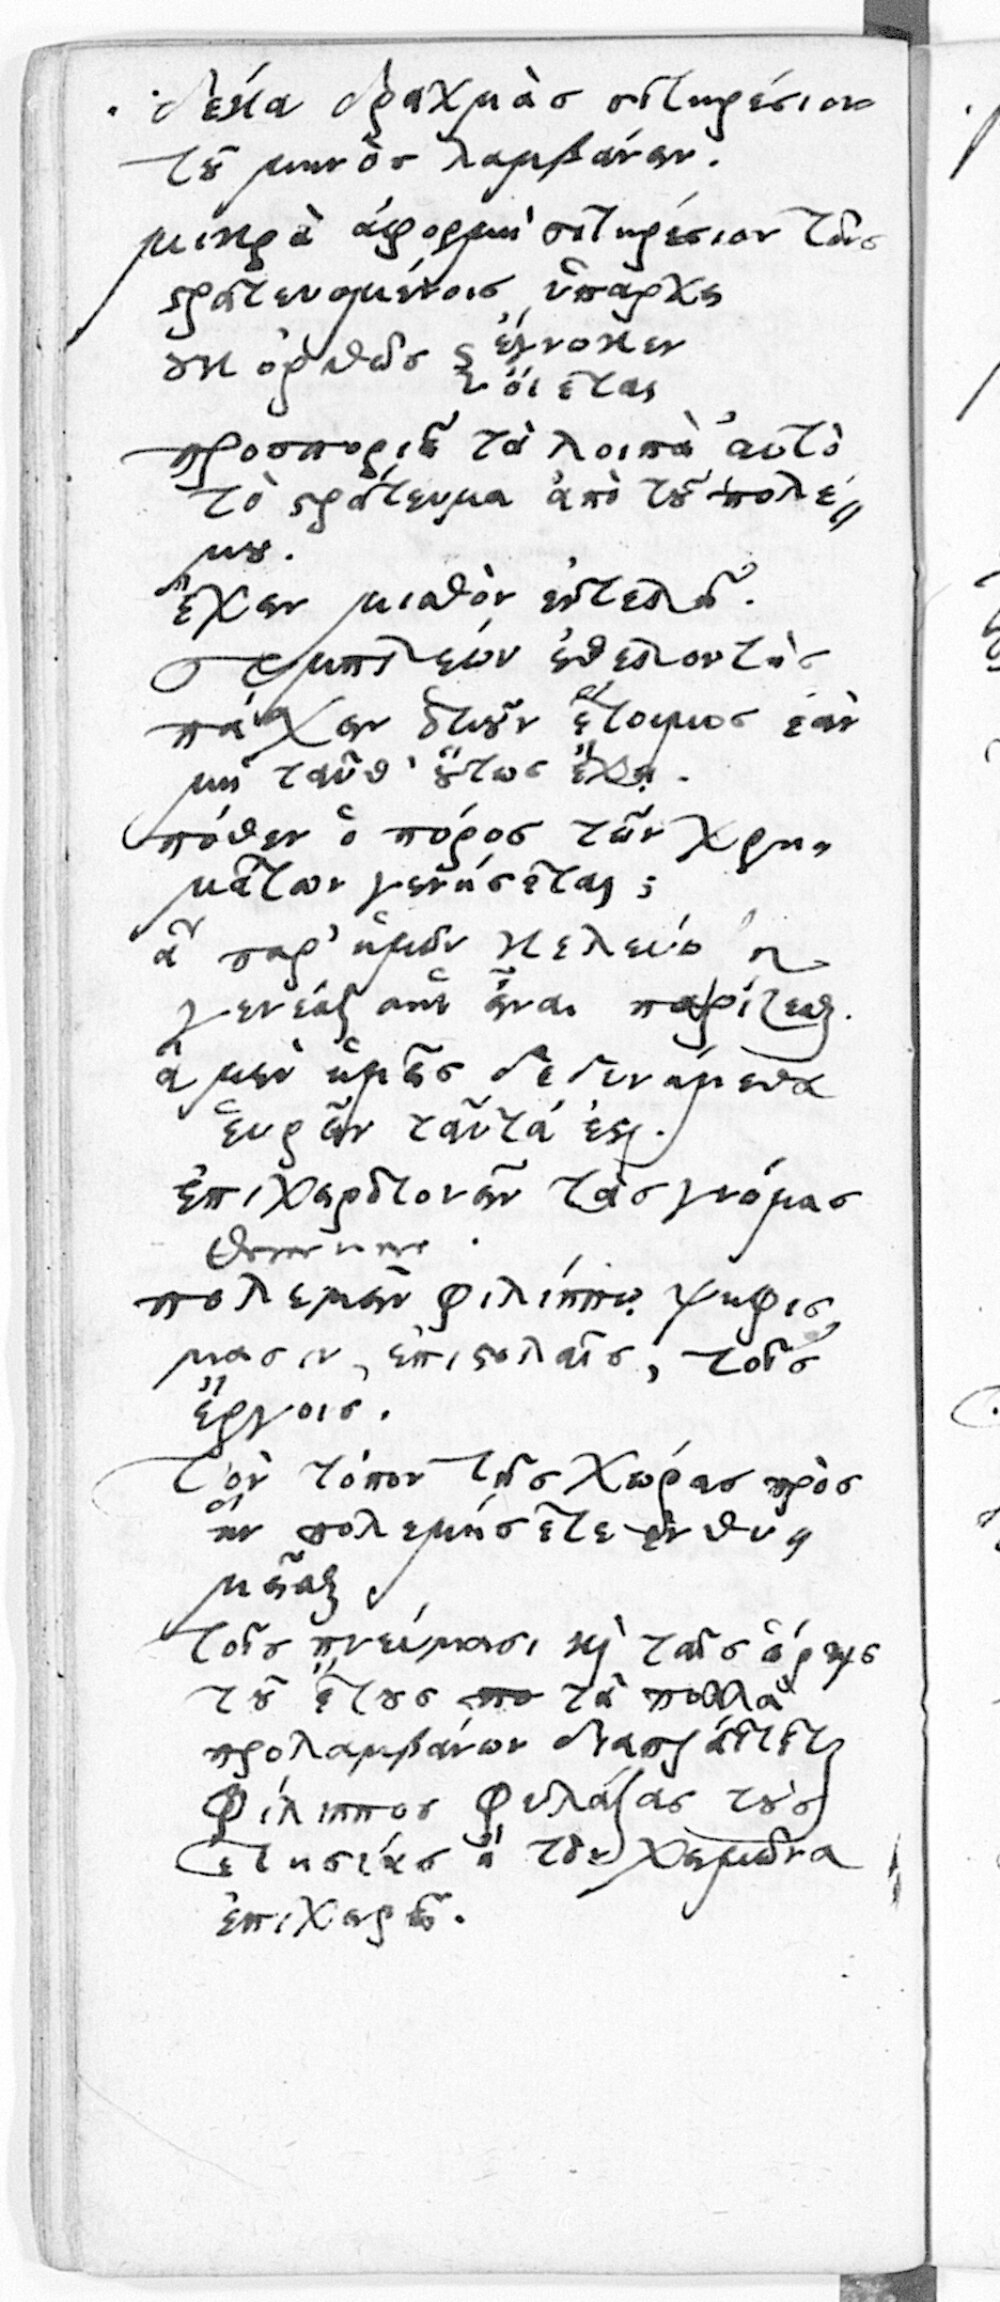 δέκα δραχμὰς σιτηρέσιον
τοῦ μηνὸς λαμβάνειν.
μικρὰ ἀφορμὴ σιτηρέσιον τοῖς
στρατευομένοις ὑπάρχει
οὐκ ὀρθῶς ἔγνωκεν
οἴεται
προσποριεῖ τὰ λοιπὰ αὐτὸ
τὸ στράτευμα ἀπὸ τοῦ πολέ-
μου.
ἔχειν μισθὸν ἐντελῆ.
συμπλέων ἐθελοντὴς
πάσχειν ὁτιοῦν ἕτοιμος ἐὰν
μὴ ταῦθ' οὕτως ἔχῃ.
πόθεν ὁ πόρος τῶν χρη-
μάτων γενήσεται;
ἃ παρ' ὑμῶν κελεύω
γενέσθαι
ἃ μὲν ἡμεῖς δεδυνήμεθα
εὑρεῖν ταῦτά ἐστι.
ἐπιχειροτονεῖν τὰς γνώμας
πολεμεῖν φιλίππῳ ψηφίσ
μασιν, ἐπιστολαῖς, τοῖς
ἔργοις.
τὸν τόπον τῆς χώρας πρὸς
ἣν πολεμήσετε ἐνθυ-
μεῖσθαι
τοῖς πνεύμασι καὶ ταῖς ὥραις
τοῦ ἔτους τὰ πολλὰ
προλαμβάνων διαπράττεται
Φίλιππος φυλάξας τοὺς
ἐτησίας ἢ τὸν χειμῶνα
ἐπιχειρεῖ.